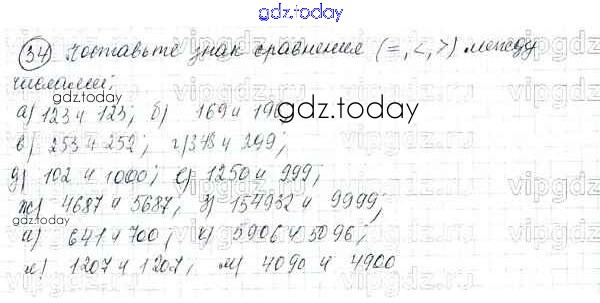 gdz.today
34 Поставьте знак сравнения (=,<,>) между
числами;
gdz.today
а) 123 и 123; б) 169 и 196
gdz.today
в) 253 и 252; г) 348 и 299;
д) 102 и 1000; е) 1250 и 999;
ж) 4687 и 5687; з) 154932 и 9999;
gdz.today
и) 641 и 700; к) 5906 и 5096;
л) 1207 и 1207; м) 4090 и 4900